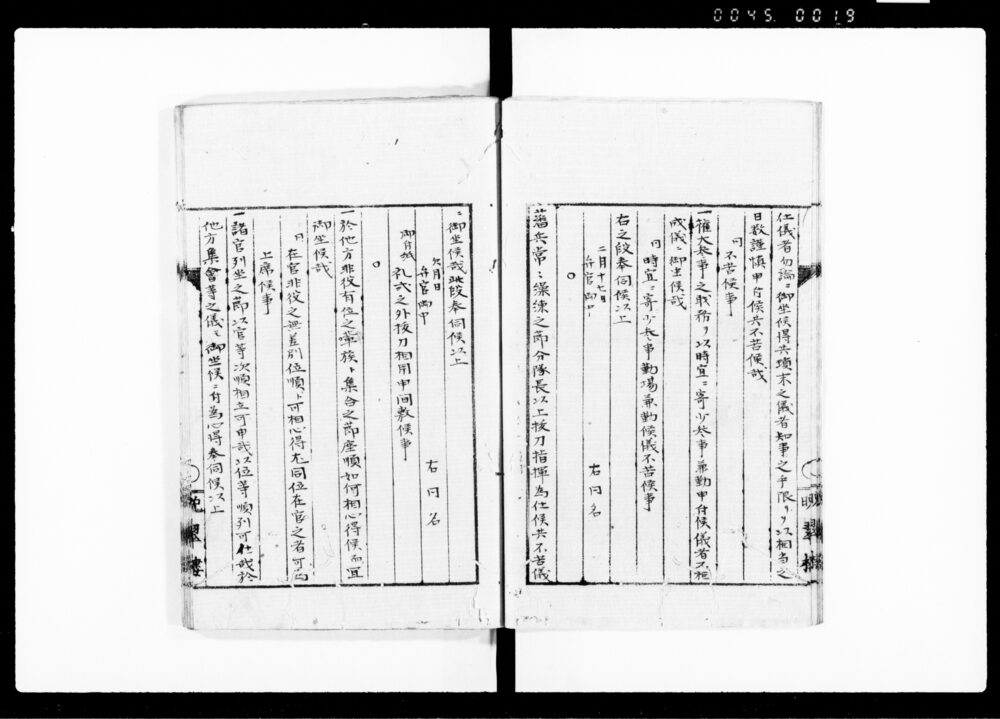 0045. 0019
仕儀者勿論ニ御坐候得共瑣末之儀者知事之手限リヲ以相当之
日数謹慎申付候共不苦候哉
同 不苦候事
一権大参事之職務ヲ以時宜ニ寄少参事兼勤申付候儀者不相
成儀ニ御坐候哉
同 時宜ニ寄少参事勤場兼勤候儀不苦候事
右之段奉伺候以上
二月十七日
弁官御中
右同名
○
一藩兵常ニ操練之節分隊長以上抜刀指揮為仕候共不苦儀
ニ御坐候哉此段奉伺候以上
月日
弁官御中
右同名
御付紙 礼式之外抜刀相用申間敷候事
○
一於他方非役有位之華族ト集会之節座順如何相心得候而宜
御坐候哉
同 在官非役之無差別位順ト可相心得尤同位在官之者可為
上席候事
一諸官列坐之節以官等次順相立可申哉以位等順列可仕哉於
他方集会等之儀モ御坐候ニ付為心得奉伺候以上
翠樓